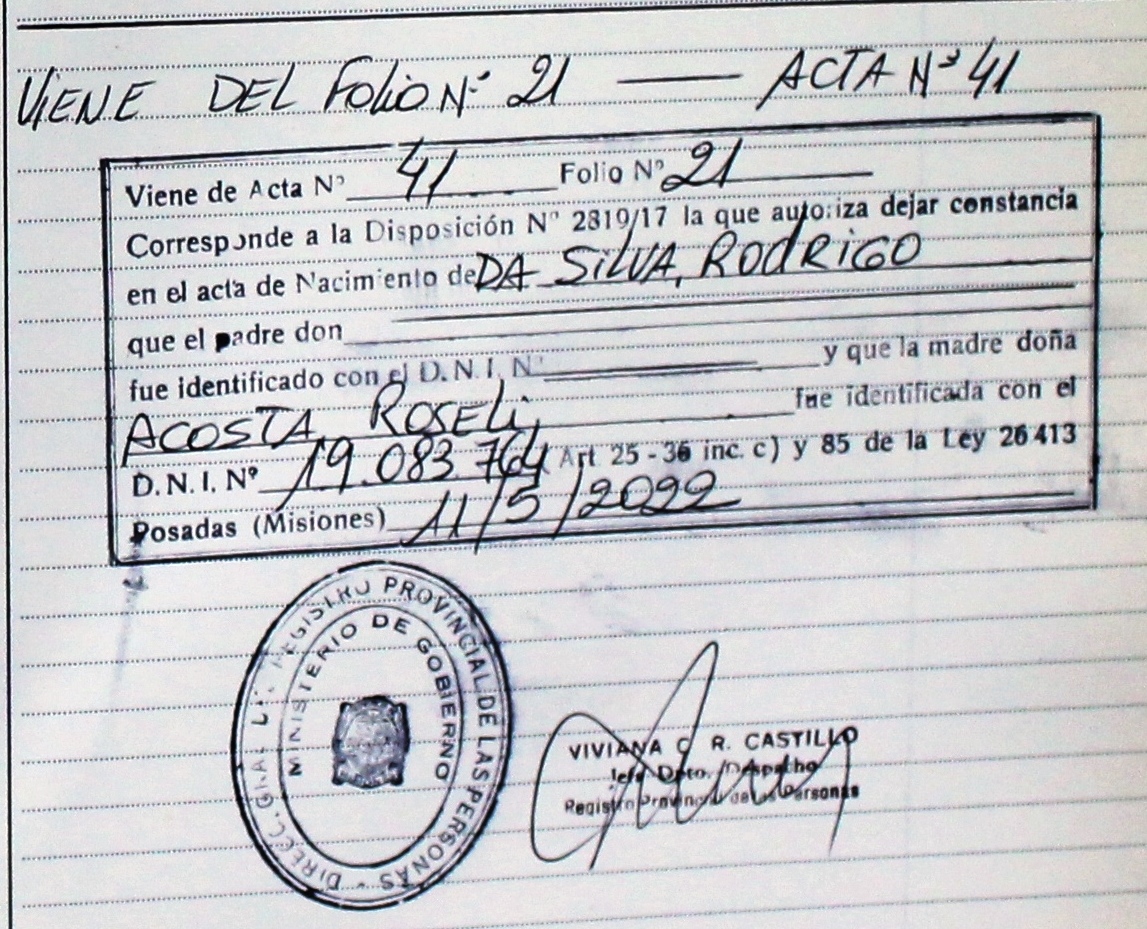 VIENE DEL FOLIO Nº 21 — ACTA Nº 41
Viene de Acta Nº 41 Folio Nº 21
Corresponde a la Disposición Nº 2819/17 la que autoriza dejar constancia
en el acta de Nacimiento de DA SILVA, RODRIGO
que el padre don
fue identificado con el D.N.I. Nº y que la madre doña
ACOSTA, ROSELI, fue identificada con el
D.N.I. Nº 19.083.764 Art 25 - 36 inc. c) y 85 de la Ley 26413
Posadas (Misiones) 11/5/2022
DIREC. GRAL REGISTRO PROVINCIAL DE LAS PERSONAS
MINISTERIO DE GOBIERNO
VIVIANA C. R. CASTILLO
Jefa Dpto. Despacho
Registro Provincial de las Personas